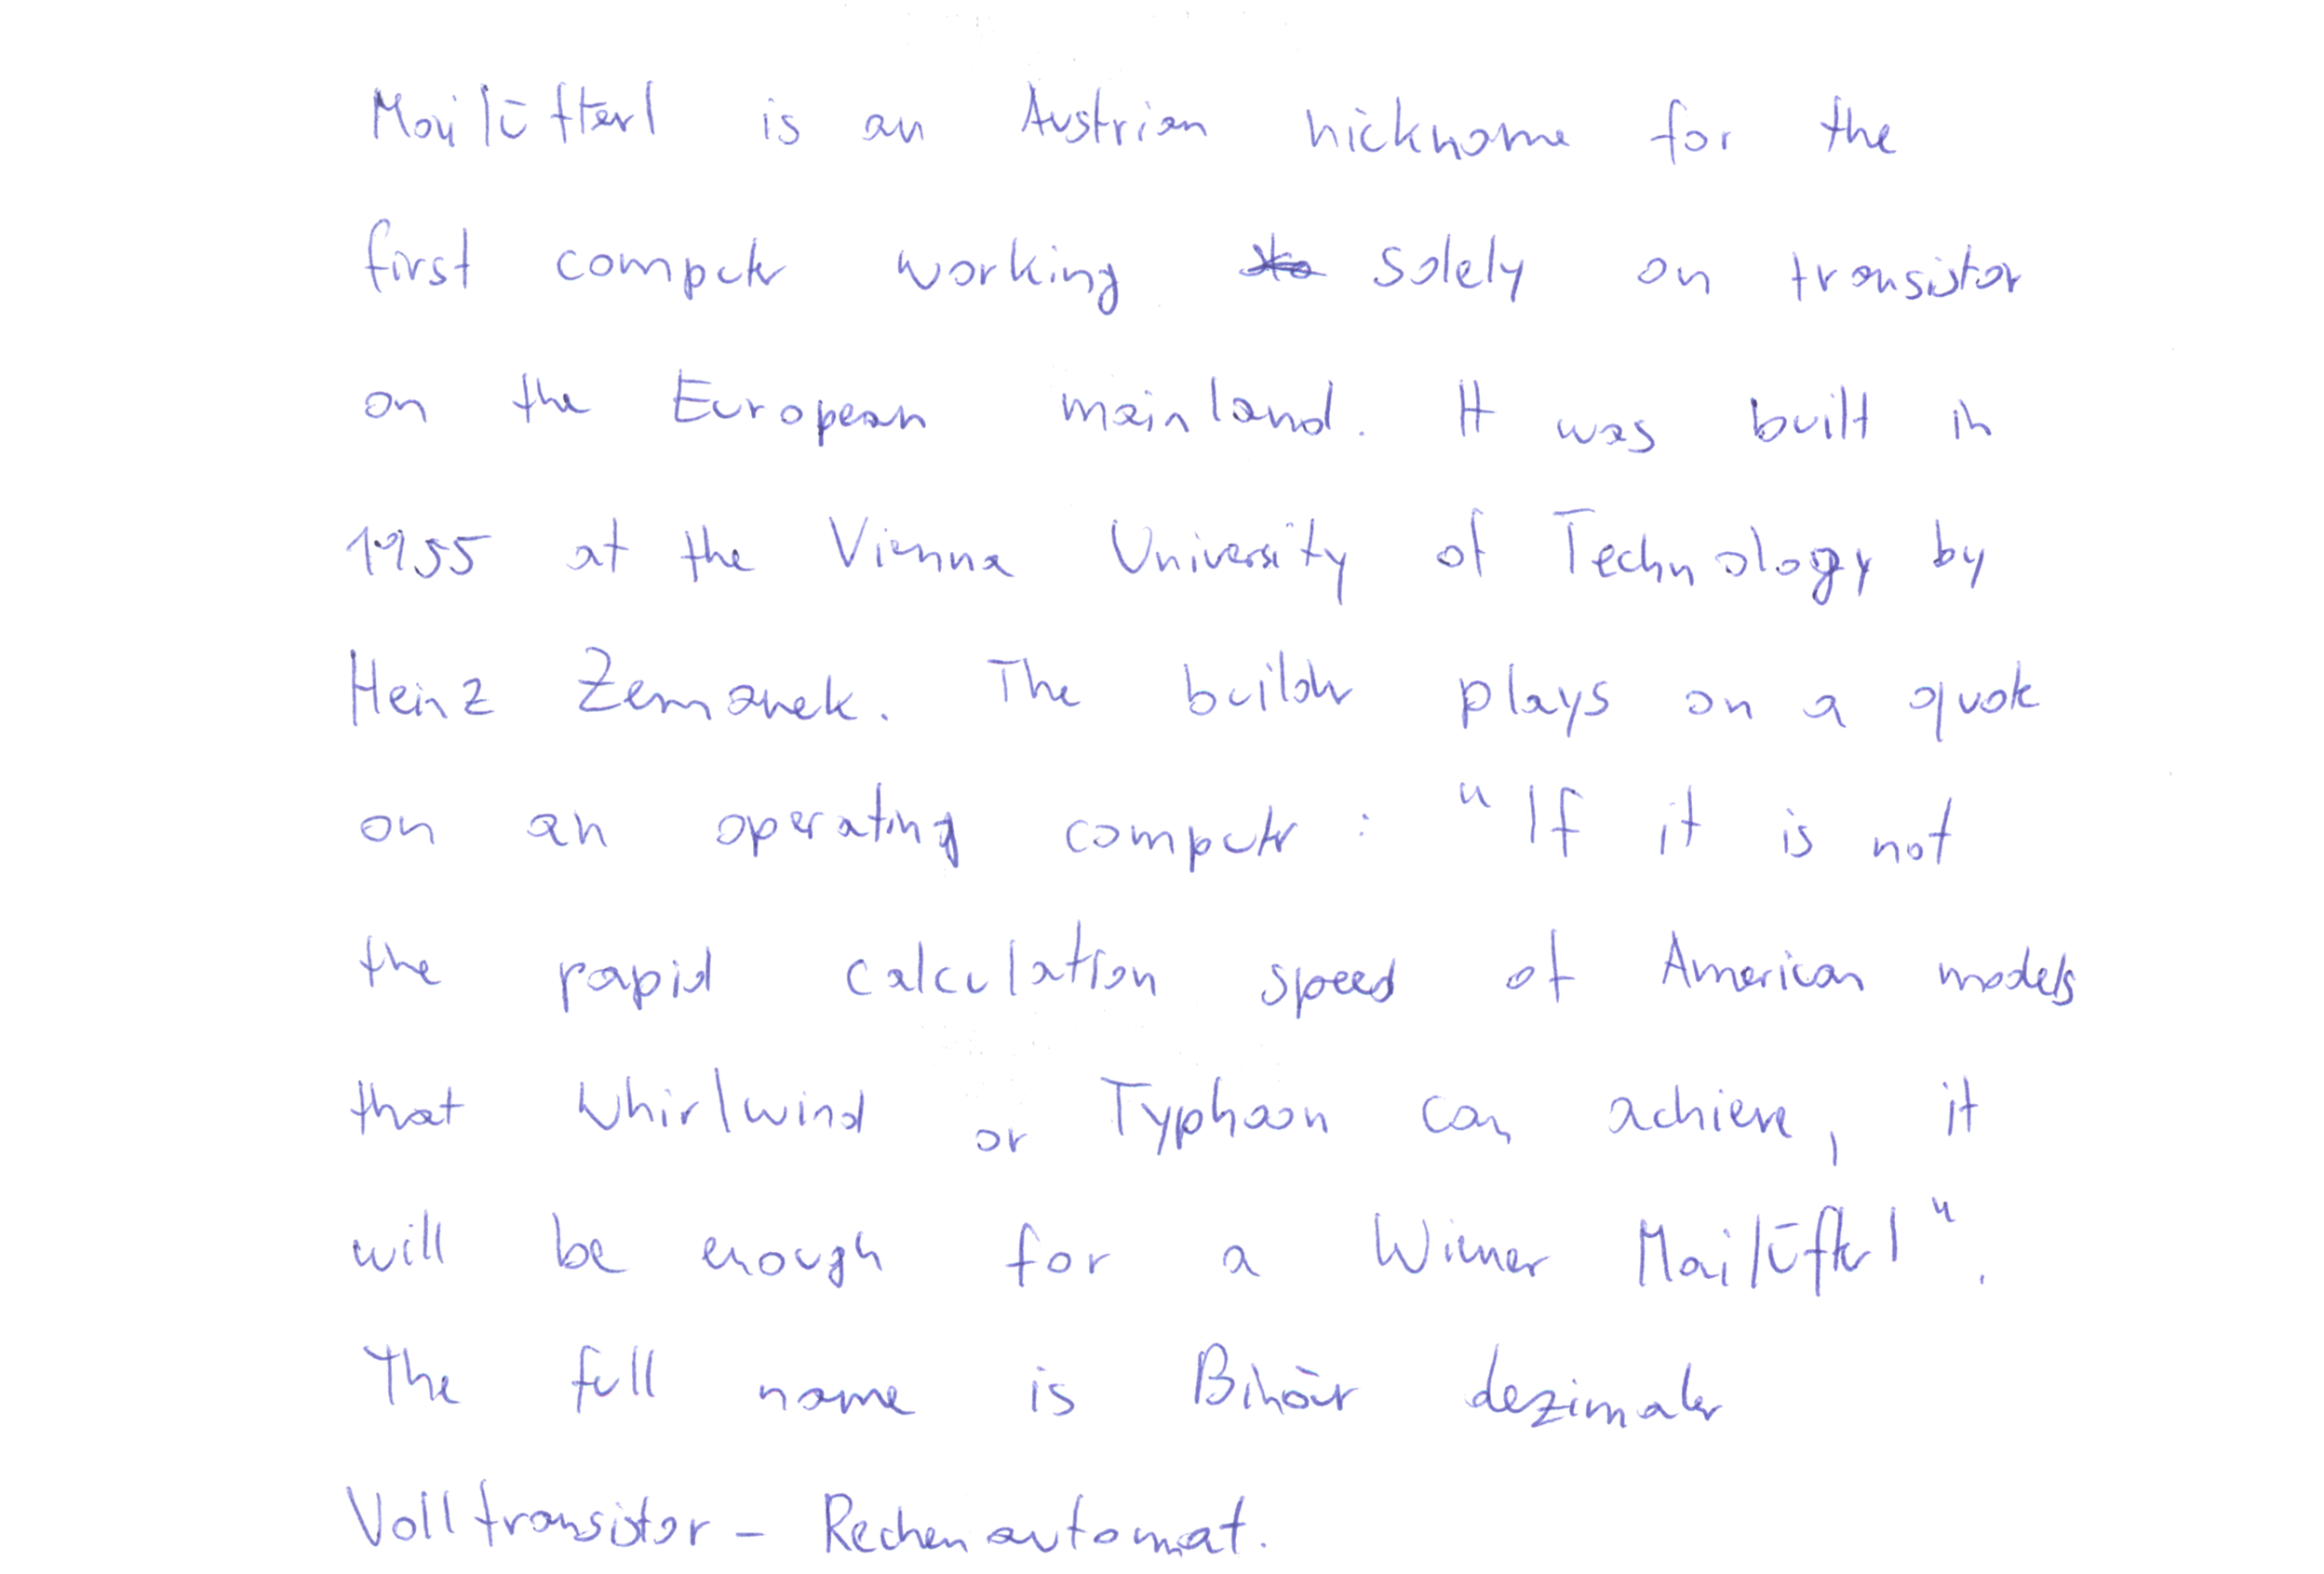 Mailüfterl is an Austrian nickname for the
first computer working solely on transistor
on the European mainland. It was built in
1955 at the Vienna University of Technology by
Heinz Zemanek. The builder plays on a quote
on an operating computer: "If it is not
the rapid calculation speed of American models
that Whirlwind or Typhoon can achieve, it
will be enough for a Wiener Mailüfterl".
The full name is Binär dezimaler
Volltransistor-Rechenautomat.